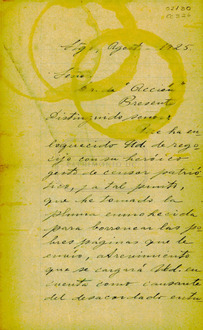 Agosto - 1925.
Señor
de "Acción"
Presente
Distinguido señor
Me ha en
loquecido Ud. de rego
cijo con su heróico
gesto de censor patrió
tico, y a tal punto,
que he tomado la
pluma enmohecida
para borronear las po
bres páginas que le
envio, atrevimiento
que se cargará Ud. en
cuenta como causante
del desacordado entu